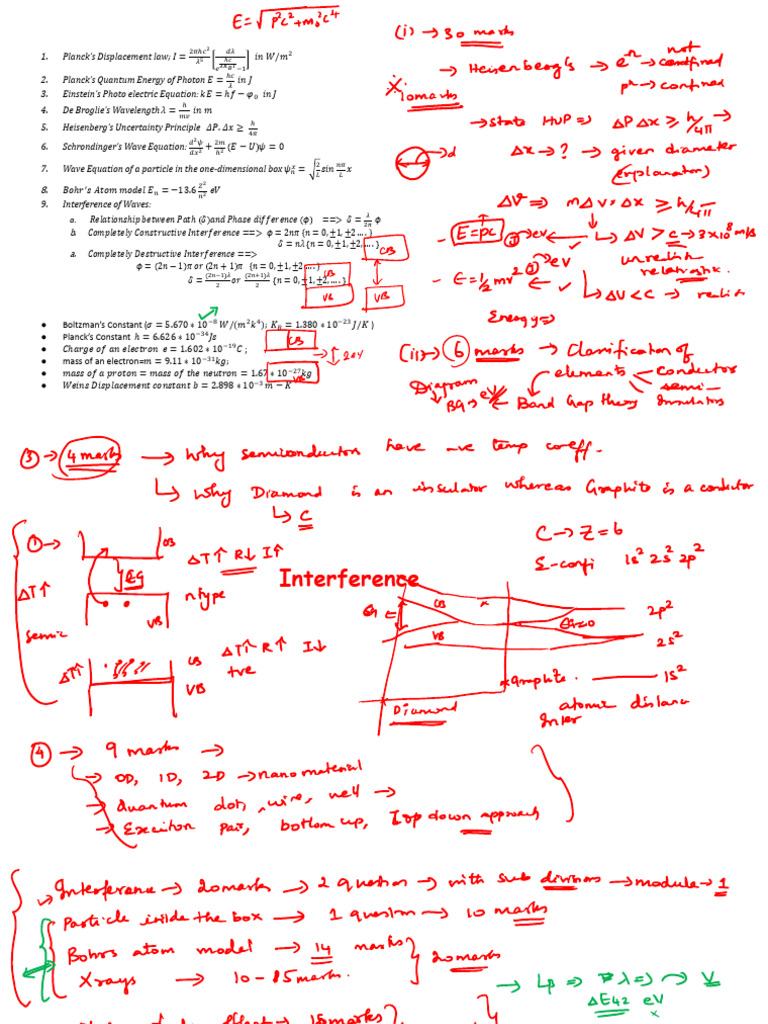 E = √p²c²+m₀²c⁴
1. Planck's Displacement law; I = 2πhc²/λ⁵ [dλ / e^(hc/λK_BT) −1] in W/m²
2. Planck's Quantum Energy of Photon E = hc/λ in J
3. Einstein's Photo electric Equation: kE = hf − φ₀ in J
4. De Broglie's Wavelength λ = h/mv in m
5. Heisenberg's Uncertainty Principle ΔP.Δx ≥ h/4π
6. Schrondinger's Wave Equation: d²ψ/dx² + 2m/ħ² (E − U)ψ = 0
7. Wave Equation of a particle in the one-dimensional box ψₙˣ = √2/L sin nπ/L x
8. Bohr's Atom model Eₙ = −13.6 Z²/n² eV
9. Interference of Waves:
a. Relationship between Path (δ)and Phase difference (φ) ==> δ = λ/2π φ
b. Completely Constructive Interference ==> φ = 2πn {n = 0,±1,±2....}
δ = nλ{n = 0,±1,±2,....}
a. Completely Destructive Interference ==>
φ = (2n − 1)π or (2n + 1)π {n = 0,±1,±2....}
δ = (2n−1)λ/2 or (2n+1)λ/2 {n = 0,±1,±2,....}
• Boltzman's Constant (σ = 5.670 * 10⁻⁸ W/(m²k⁴); K_B = 1.380 * 10⁻²³ J/K )
• Planck's Constant h = 6.626 * 10⁻³⁴Js
• Charge of an electron e = 1.602 * 10⁻¹⁹C ;
• mass of an electron=m = 9.11 * 10⁻³¹kg;
• mass of a proton = mass of the neutron = 1.67 * 10⁻²⁷kg
• Weins Displacement constant b = 2.898 * 10⁻³m − K
CB
CB
VB
VB
CB
VB
(i) → 30 marks
→ Heisenberg's → eⁿ → not confined
pⁿ → confined
10marks
→ state HUP ⇒ ΔP Δx ≥ h/4π →
d
Δx → ? → given diameter
(explanation)
ΔV ⇒ m Δv · Δx ≥ h/4π
- E = pc ① → eV ← ↳ ΔV > c → 3×10⁸ m/s
unrealistic
relativistic.
- E = 1/2 mv² ② → eV ←
↳ ΔV < C → realistic
Energy ⇒
(ii) → 6 marks → Classification of
elements
conductor
semi-
Insulators
Diagram
↓ BG ⇒ eV ← Band Gap theory
③ → 4 marks → Why semiconductors have -ve temp coeff.
↳ why Diamond is an insulator whereas Graphite is a conductor
↳ C
① →
CB
EG
VB
ΔT↑
semic
ΔT↑ R↓ I↑
n type
ΔT↑
CB
VB
ΔT↑ R↑ I↓
+ve
C → Z = 6
E-confi 1s² 2s² 2p²
Interference
CB
VB
2p²
2s²
1s²
Graphite
Diamond
Inter atomic distance
④ → 9 marks →
→ 0D, 1D, 2D → nanomaterial
→ Quantum dot, wire, well →
→ Exciton pair, bottom up, Top down approach
Interference → 20marks → 2 question → with sub division → module → 1
Particle inside the box → 1 question → 10 marks
Bohrs atom model → 14 marks
20marks
X rays → 10 - 15marks.
→ Lp ⇒ λ ⇒ → V
ΔE42 eV